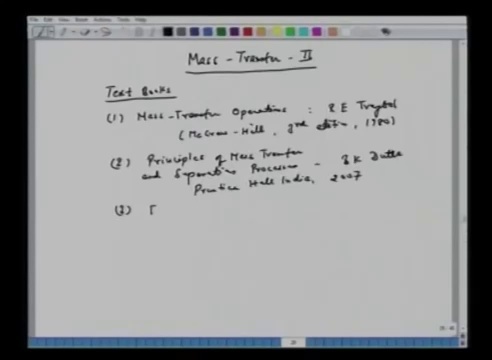 Mass - Transfer - II
Text Books
(1) Mass-Transfer Operations : R E Treybal
(McGraw-Hill, 3rd edition, 1980)
(2) Principles of Mass Transfer
and Separation Processes - B K Dutta
Prentice Hall India, 2007
(3)